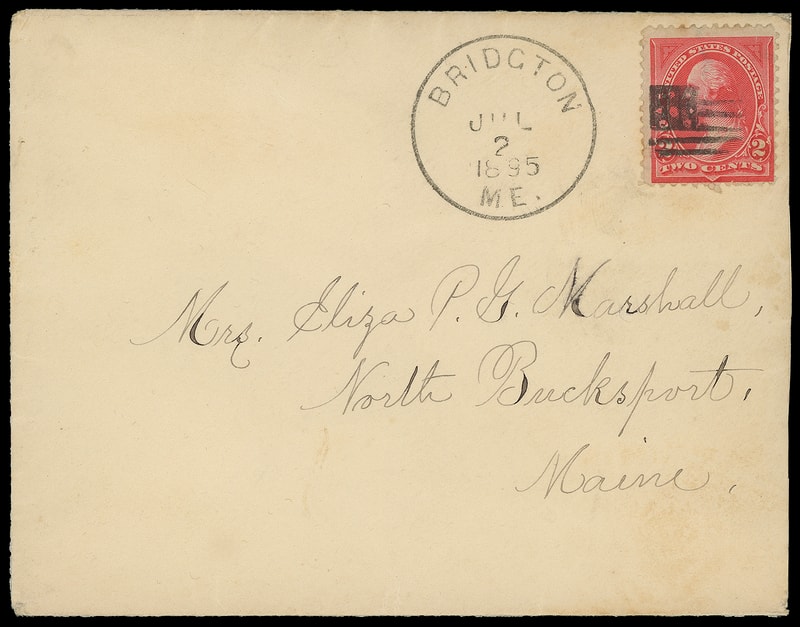 BRIDGTON
JUL
2
1895
ME.
UNITED STATES POSTAGE
2 2
TWO CENTS
Mrs. Eliza P. G. Marshall,
North Bucksport,
Maine,